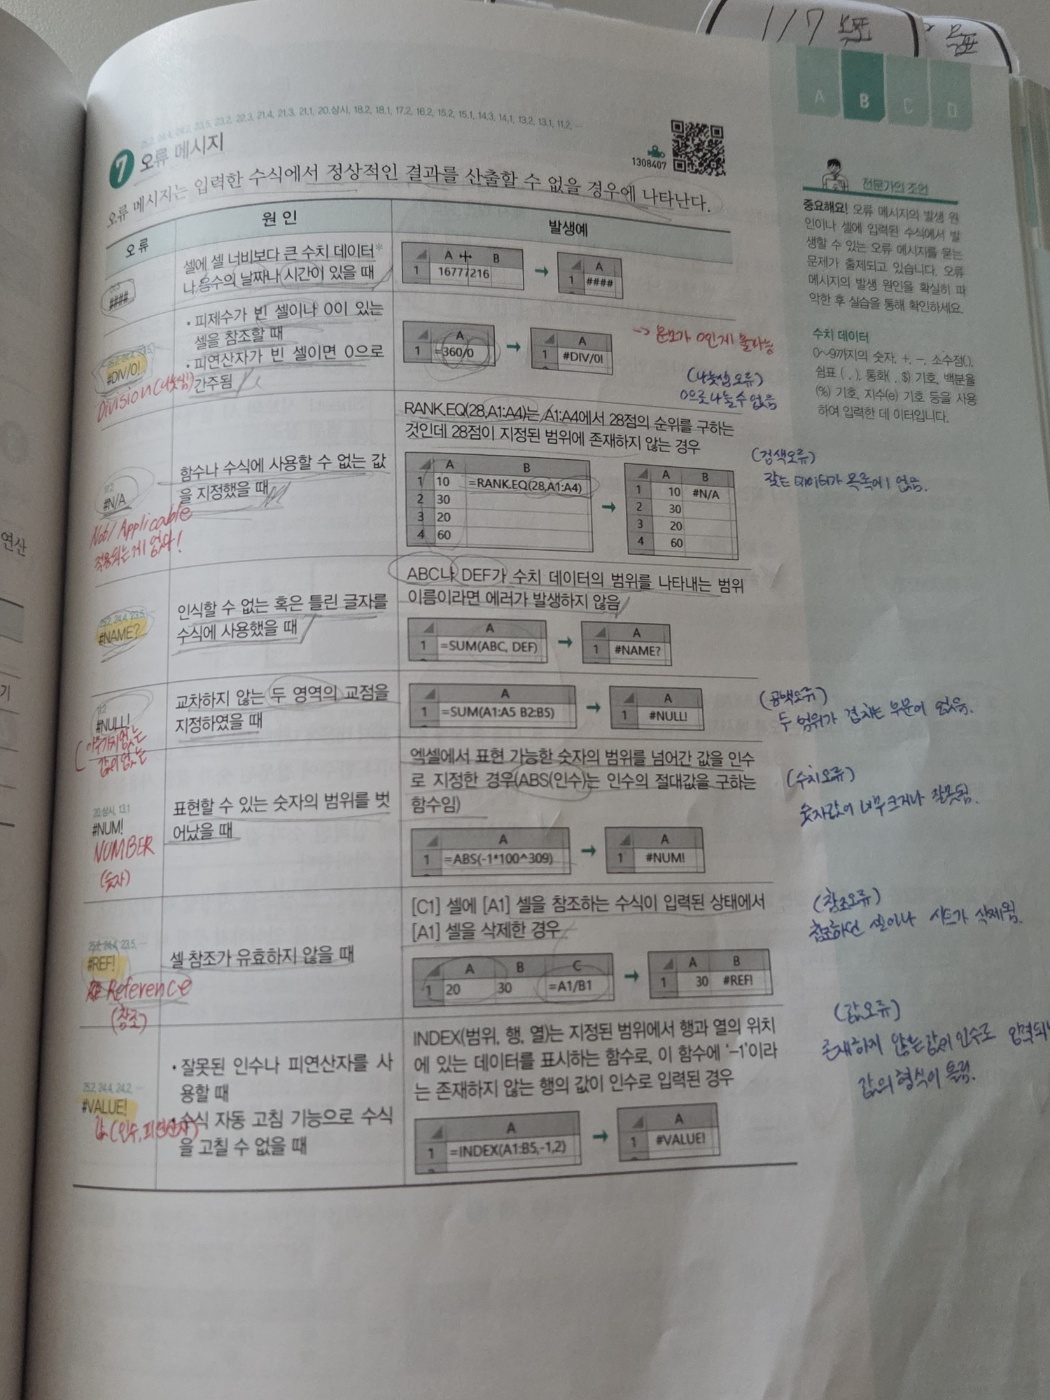 117
A B C D
25.2, 24.4, 24.2, 23.5, 23.2, 22.3, 21.4, 21.3, 21.1, 20.상시, 18.2, 18.1, 17.2, 16.2, 15.2, 15.1, 14.3, 14.1, 13.2, 13.1, 11.2, …
7 오류 메시지
1308407
오류 메시지는 입력한 수식에서 정상적인 결과를 산출할 수 없을 경우에 나타난다.
오류 원인 발생예
####
셀에 셀 너비보다 큰 수치 데이터*
나 음수의 날짜나 시간이 있을 때
A B
1 16777216
→
A
1 ####
#DIV/0!
Division (나눗셈)
• 피제수가 빈 셀이나 0이 있는
셀을 참조할 때
• 피연산자가 빈 셀이면 0으로
간주됨
A
1 =360/0
→
A
1 #DIV/0!
→ 분모가 0인게 불가능
(나눗셈 오류)
0으로 나눌 수 없음
#N/A
Not/Applicable
적용되는게 없다!
함수나 수식에 사용할 수 없는 값
을 지정했을 때
RANK.EQ(28,A1:A4)는 A1:A4에서 28점의 순위를 구하는
것인데 28점이 지정된 범위에 존재하지 않는 경우
A B
1 10 =RANK.EQ(28,A1:A4)
2 30
3 20
4 60
→
A B
1 10 #N/A
2 30
3 20
4 60
(검색오류)
찾는 데이터가 목록에 없음.
25.2, 24.4, 23.5,
#NAME?
인식할 수 없는 혹은 틀린 글자를
수식에 사용했을 때
ABC나 DEF가 수치 데이터의 범위를 나타내는 범위
이름이라면 에러가 발생하지 않음
A
1 =SUM(ABC, DEF)
→
A
1 #NAME?
11.2
#NULL!
아무가치없는
값이 없는
교차하지 않는 두 영역의 교점을
지정하였을 때
A
1 =SUM(A1:A5 B2:B5)
→
A
1 #NULL!
(공백오류)
두 범위가 겹치는 부분이 없음.
20.상시, 13.1
#NUM!
NUMBER
(숫자)
표현할 수 있는 숫자의 범위를 벗
어났을 때
엑셀에서 표현 가능한 숫자의 범위를 넘어간 값을 인수
로 지정한 경우(ABS(인수)는 인수의 절대값을 구하는
함수임)
A
1 =ABS(-1*100^309)
→
A
1 #NUM!
(수치오류)
숫자값이 너무 크거나 잘못됨.
25.2, 24.4, 23.5, …
#REF!
Reference
(참조)
셀 참조가 유효하지 않을 때
[C1] 셀에 [A1] 셀을 참조하는 수식이 입력된 상태에서
[A1] 셀을 삭제한 경우
A B C
1 20 30 =A1/B1
→
A B
1 30 #REF!
(참조오류)
참조하던 셀이나 시트가 삭제됨.
25.2, 24.4, 24.2, …
#VALUE!
값 (인수, 피연산자)
• 잘못된 인수나 피연산자를 사
용할 때
• 수식 자동 고침 기능으로 수식
을 고칠 수 없을 때
INDEX(범위, 행, 열)는 지정된 범위에서 행과 열의 위치
에 있는 데이터를 표시하는 함수로, 이 함수에 '-1'이라
는 존재하지 않는 행의 값이 인수로 입력된 경우
A
1 =INDEX(A1:B5,-1,2)
→
A
1 #VALUE!
(값오류)
존재하지 않는 값이 인수로 입력되
값의 형식이
전문가의 조언
중요해요! 오류 메시지의 발생 원
인이나 셀에 입력된 수식에서 발
생할 수 있는 오류 메시지를 묻는
문제가 출제되고 있습니다. 오류
메시지의 발생 원인을 확실히 파
악한 후 실습을 통해 확인하세요.
수치 데이터
0~9까지의 숫자, +, -, 소수점(.),
쉼표 ( , ), 통화( , $) 기호, 백분율
(%) 기호, 지수(e) 기호 등을 사용
하여 입력한 데이터입니다.
연산
기